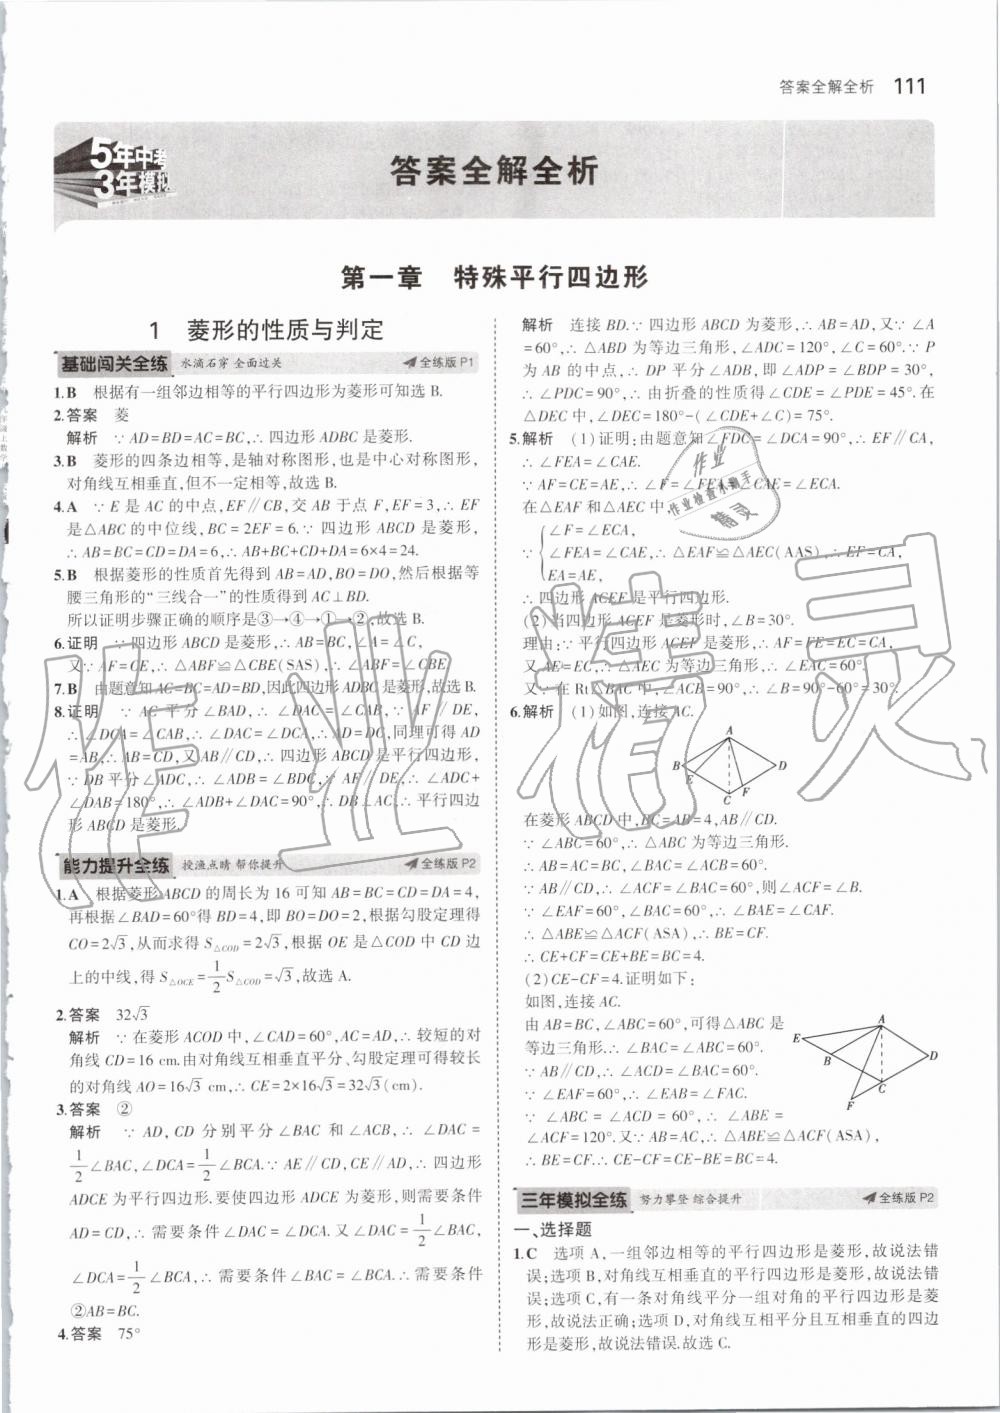 答案全解全析 111
5年中考
3年模拟
答案全解全析
第一章 特殊平行四边形
1 菱形的性质与判定
基础闯关全练 水滴石穿 全面过关 全练版P1
1.B 根据有一组邻边相等的平行四边形为菱形可知选B.
2.答案 菱
解析 ∵AD=BD=AC=BC,∴四边形ADBC是菱形.
3.B 菱形的四条边相等,是轴对称图形,也是中心对称图形,
对角线互相垂直,但不一定相等,故选B.
4.A ∵E是AC的中点,EF∥CB,交AB于点F,EF=3,∴EF
是△ABC的中位线,BC=2EF=6.∵四边形ABCD是菱形,
∴AB=BC=CD=DA=6,∴AB+BC+CD+DA=6×4=24.
5.B 根据菱形的性质首先得到AB=AD,BO=DO,然后根据等
腰三角形的“三线合一”的性质得到AC⊥BD.
所以证明步骤正确的顺序是③→④→①→②,故选B.
6.证明 ∵四边形ABCD是菱形,∴AB=BC,∠A=∠C,
又∵AF=CE,∴△ABF≌△CBE(SAS),∴∠ABF=∠CBE
7.B 由题意知AC=BC=AD=BD,因此四边形ADBC是菱形,故选B.
8.证明 ∵AC平分∠BAD,∴∠DAC=∠CAB,∵AF∥DE,
∴∠DCA=∠CAB,∴∠DAC=∠DCA,∴AD=DC,同理可得AD
=AB,∴AB=CD,又AB∥CD,∴四边形ABCD是平行四边形,
∵DB平分∠ADC,∴∠ADB=∠BDC,∵AF∥DE,∴∠ADC+
∠DAB=180°,∴∠ADB+∠DAC=90°,∴DB⊥AC,∴平行四边
形ABCD是菱形.
能力提升全练 授渔点睛 帮你提升 全练版P2
1.A 根据菱形ABCD的周长为16可知AB=BC=CD=DA=4,
再根据∠BAD=60°得BD=4,即BO=DO=2,根据勾股定理得
CO=2√3,从而求得S△COD=2√3,根据OE是△COD中CD边
上的中线,得S△OCE=1/2S△COD=√3,故选A.
2.答案 32√3
解析 ∵在菱形ACOD中,∠CAD=60°,AC=AD,∴较短的对
角线CD=16 cm.由对角线互相垂直平分、勾股定理可得较长
的对角线AO=16√3 cm,∴CE=2×16√3=32√3(cm).
3.答案 ②
解析 ∵AD,CD分别平分∠BAC和∠ACB,∴∠DAC=
1/2∠BAC,∠DCA=1/2∠BCA.∵AE∥CD,CE∥AD,∴四边形
ADCE为平行四边形.要使四边形ADCE为菱形,则需要条件
AD=CD,∴需要条件∠DAC=∠DCA.又∠DAC=1/2∠BAC,
∠DCA=1/2∠BCA,∴需要条件∠BAC=∠BCA,∴需要条件
②AB=BC.
4.答案 75°
解析 连接BD.∵四边形ABCD为菱形,∴AB=AD,又∵∠A
=60°,∴△ABD为等边三角形,∠ADC=120°,∠C=60°.∵P
为AB的中点,∴DP平分∠ADB,即∠ADP=∠BDP=30°,
∴∠PDC=90°,∴由折叠的性质得∠CDE=∠PDE=45°.在
△DEC中,∠DEC=180°-(∠CDE+∠C)=75°.
5.解析 (1)证明:由题意知∠FDC=∠DCA=90°,∴EF∥CA,
∴∠FEA=∠CAE.
∵AF=CE=AE,∴∠F=∠FEA=∠CAE=∠ECA.
在△EAF和△AEC中,
∠F=∠ECA,
∵ ∠FEA=∠CAE,∴△EAF≌△AEC(AAS),∴EF=CA,
EA=AE,
∴四边形ACEF是平行四边形.
(2)当四边形ACEF是菱形时,∠B=30°.
理由:∵平行四边形ACEF是菱形,∴AF=FE=EC=CA,
又AE=EC,∴△AEC为等边三角形,∴∠ECA=60°.
又∵在Rt△BAC中,∠ACB=90°,∴∠B=90°-60°=30°.
6.解析 (1)如图,连接AC.
A
B
E
D
C
F
在菱形ABCD中,BC=AB=4,AB∥CD.
∵∠ABC=60°,∴△ABC为等边三角形.
∴AB=AC=BC,∠BAC=60°.
∵AB∥CD,∴∠ACF=∠BAC=60°,则∠ACF=∠B.
∵∠EAF=60°,∠BAC=60°,∴∠BAE=∠CAF.
∴△ABE≌△ACF(ASA),∴BE=CF.
∴CE+CF=CE+BE=BC=4.
(2)CE-CF=4.证明如下:
如图,连接AC.
由AB=BC,∠ABC=60°,可得△ABC是
等边三角形.∴∠BAC=∠ABC=60°.
∵AB∥CD,∴∠ACD=∠BAC=60°.
∵∠EAF=60°,∴∠EAB=∠FAC.
∵∠ABC=∠ACD=60°,∴∠ABE=
∠ACF=120°.又∵AB=AC,∴△ABE≌△ACF(ASA),
∴BE=CF.∴CE-CF=CE-BE=BC=4.
A
E
B
D
C
F
三年模拟全练 努力攀登 综合提升 全练版P2
一、选择题
1.C 选项A,一组邻边相等的平行四边形是菱形,故说法错
误;选项B,对角线互相垂直的平行四边形是菱形,故说法错
误;选项C,有一条对角线平分一组对角的平行四边形是菱
形,故说法正确;选项D,对角线互相平分且互相垂直的四边
形是菱形,故说法错误.故选C.
作业
作业检查小助手
精灵
作业精灵